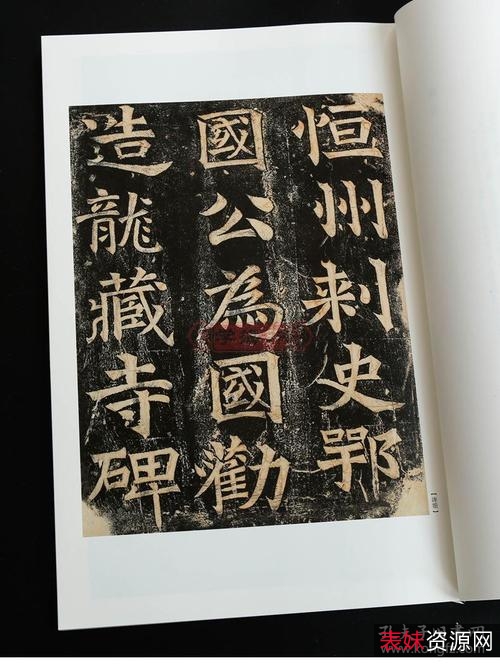 恒州刺史鄂
國公為國勸
造龍藏寺碑
表妹资源网